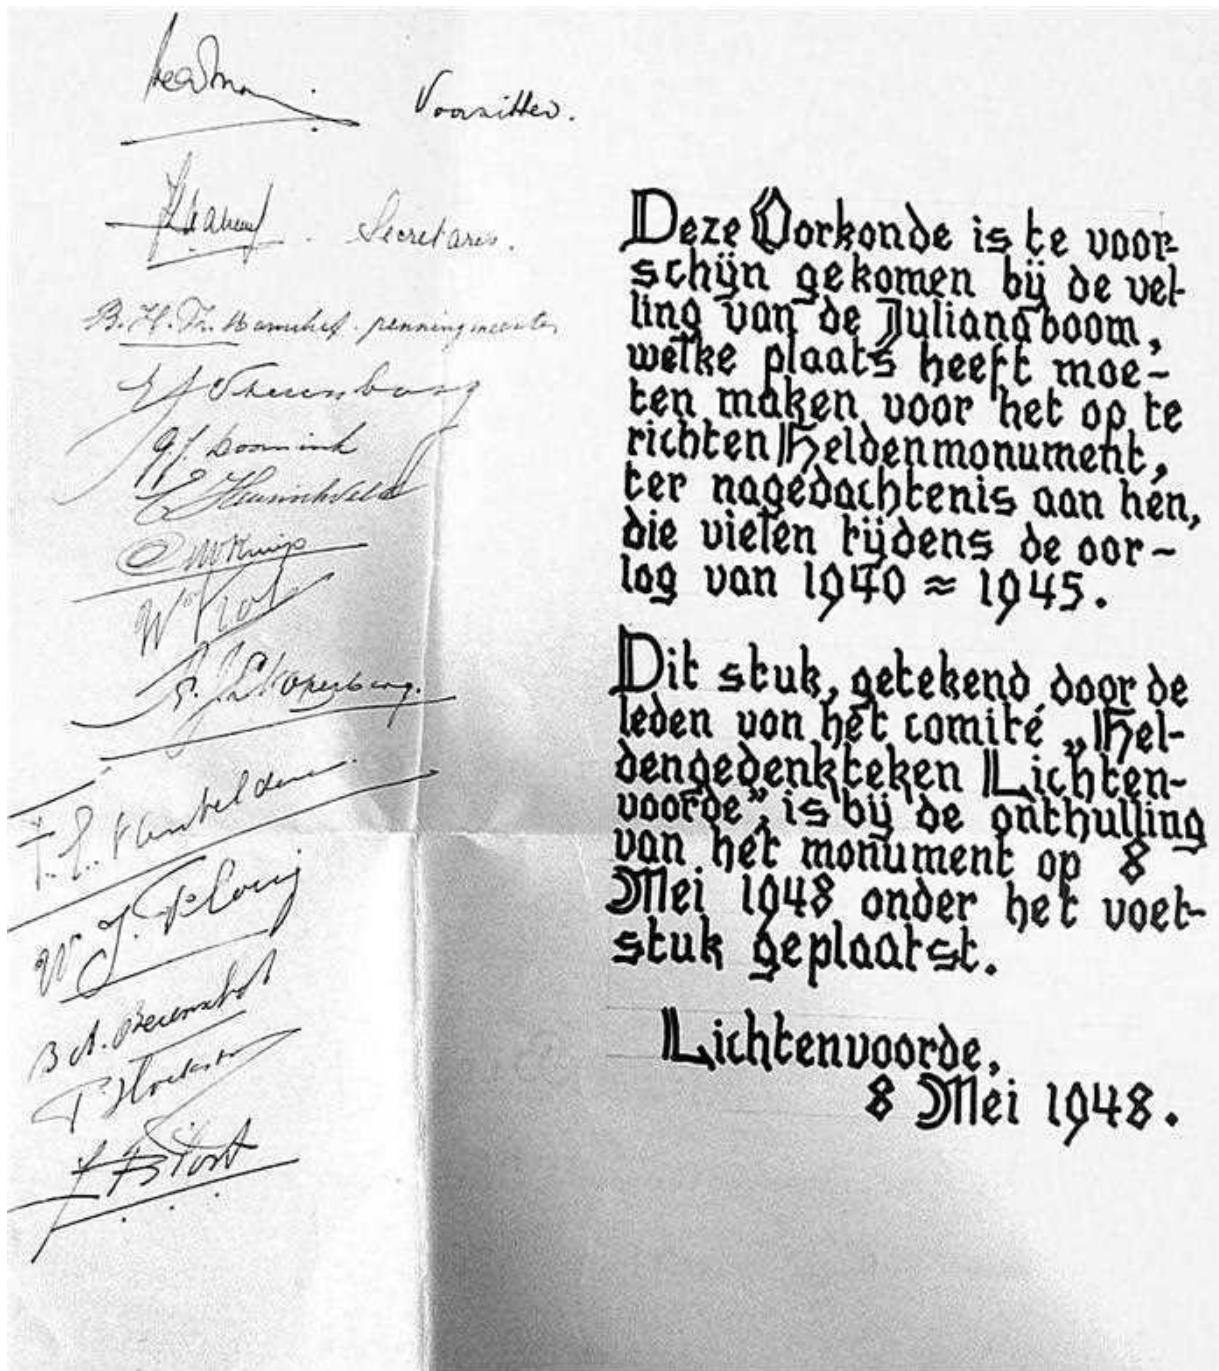 Voorzitter.
Secretaris.
B. H. Th. penningmeester
W. J.
B. A. Berenschot
P. Hoekstra
Deze Oorkonde is te voor-
schijn gekomen bij de vel-
ling van de Julianaboom,
welke plaats heeft moe-
ten maken voor het op te
richten Heldenmonument,
ter nagedachtenis aan hén,
die vielen tijdens de oor-
log van 1940 ≈ 1945.
Dit stuk, getekend door de
leden van het comité „Hel-
dengedenkteken Lichten-
voorde”, is bij de onthulling
van het monument op 8
Mei 1948 onder het voet-
stuk geplaatst.
Lichtenvoorde,
8 Mei 1948.